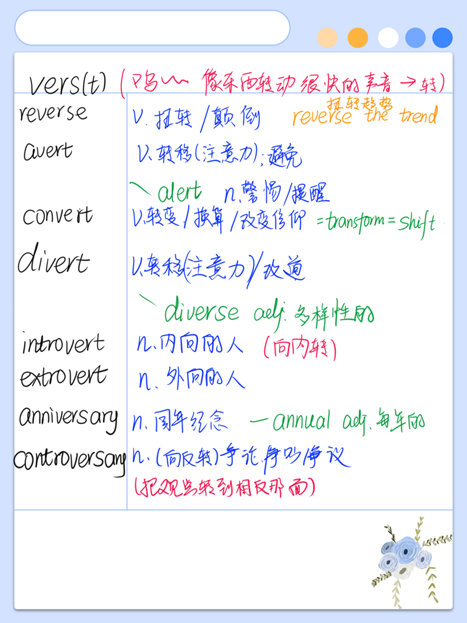 vers(t) (呜~~ 像东西转动很快的声音→转)
reverse v. 扭转/颠倒 扭转趋势 reverse the trend
avert v. 转移(注意力);避免
alert n. 警惕/提醒
convert v. 转变/换算/改变信仰 =transform=shift
divert v. 转移(注意力)/改道
diverse adj. 多样性的
introvert n. 内向的人 (向内转)
extrovert n. 外向的人
anniversary n. 周年纪念 — annual adj. 每年的
controversary n. (向反转)争论,争吵/争议
(把观点转到相反那面)